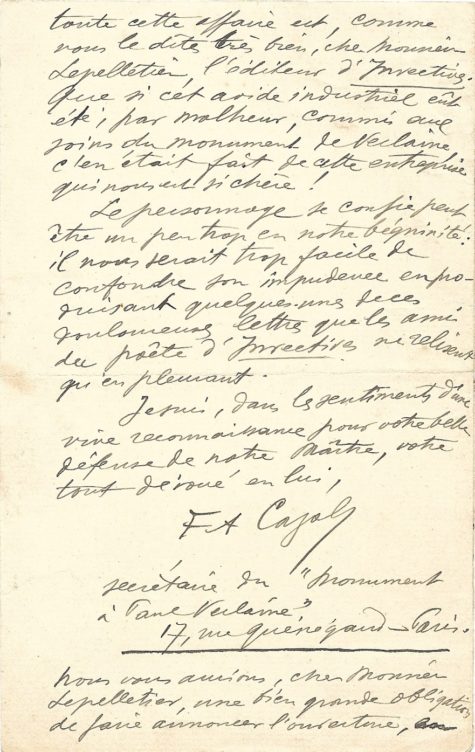 toute cette affaire est, comme
vous le dites très bien, cher Monsieur
Lepelletier, l'éditeur d'Invectives.
Que si cet avide industriel eût
été, par malheur, commis aux
soins du monument de Verlaine,
c'en était fait de cette entreprise
qui nous est si chère !
Le personnage se confie peut
être un peu trop en notre bégninité.
il nous serait trop facile de
confondre son impudence en pro-
duisant quelques-unes de ces
douloureuses lettres que les amis
du poète d'Invectives ne relisent
qu'en pleurant.
Je suis, dans les sentiments d'une
vive reconnaissance pour votre belle
défense de notre Maître, votre
tout dévoué en lui,
F A Cazals
secrétaire du "Monument
à Paul Verlaine"
17, rue Guénégaud – Paris.
Nous vous aurions, cher Monsieur
Lepelletier, une bien grande obligation
de faire annoncer l'ouverture,